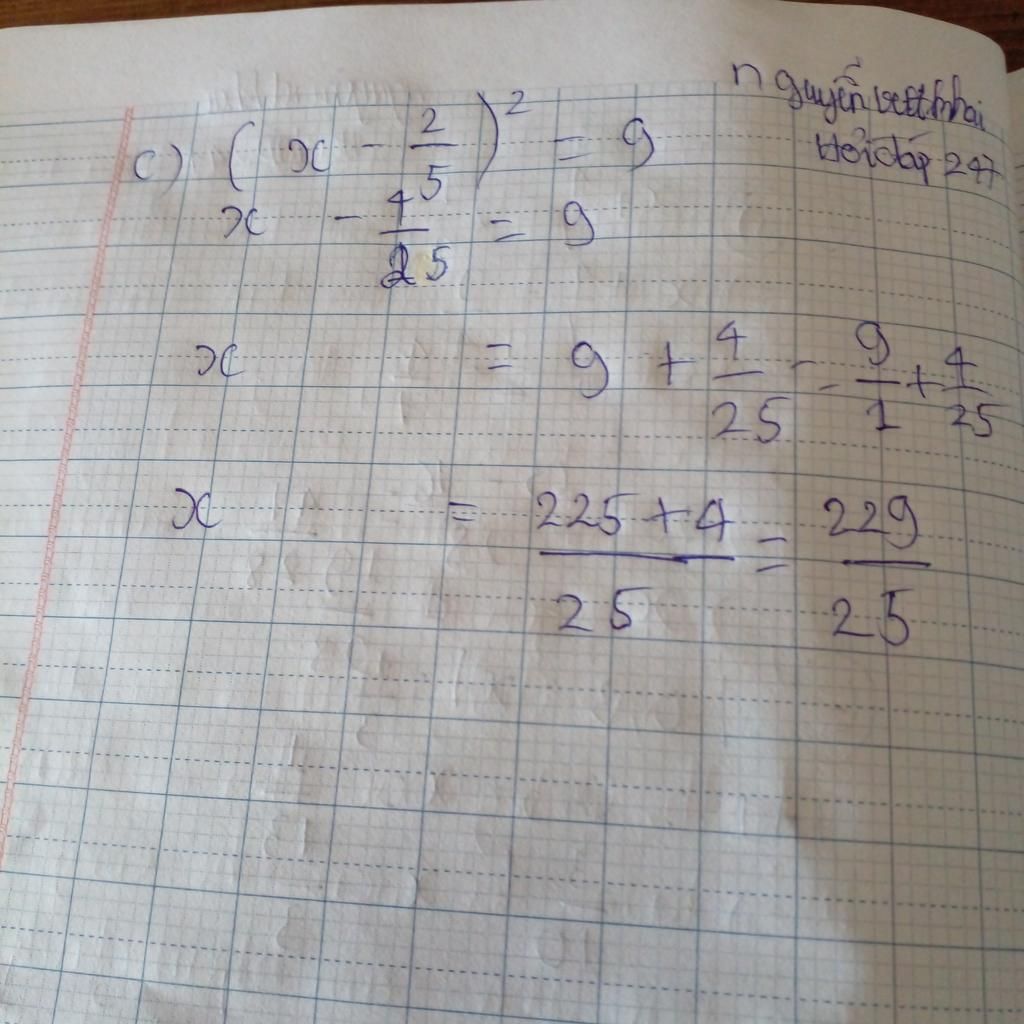 nguyễn việt khải
Hỏi đáp 247
c) ( x - 2/5 )² = 9
x - 4/25 = 9
x = 9 + 4/25 = 9/1 + 4/25
x = 225 + 4/25 = 229/25